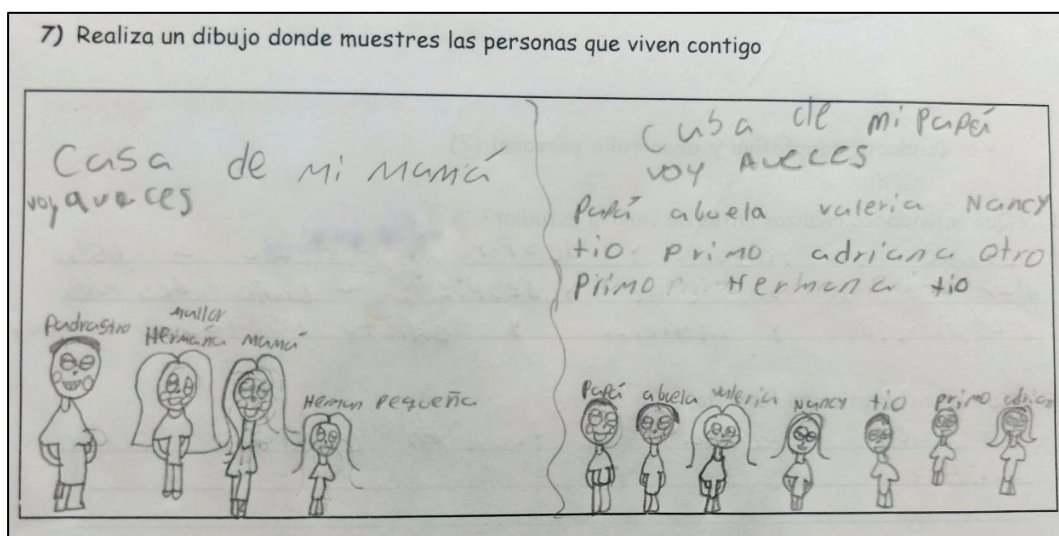 7) Realiza un dibujo donde muestres las personas que viven contigo
Casa de mi mamá
voy aveces
Padrastro
Hermana mamá
Herman pequeña
casa de mi Papá
voy Aveces
Papá abuela valeria Nancy
tio primo adriana otro
primo Hermana tio
Papá abuela valeria Nancy tio primo adrian